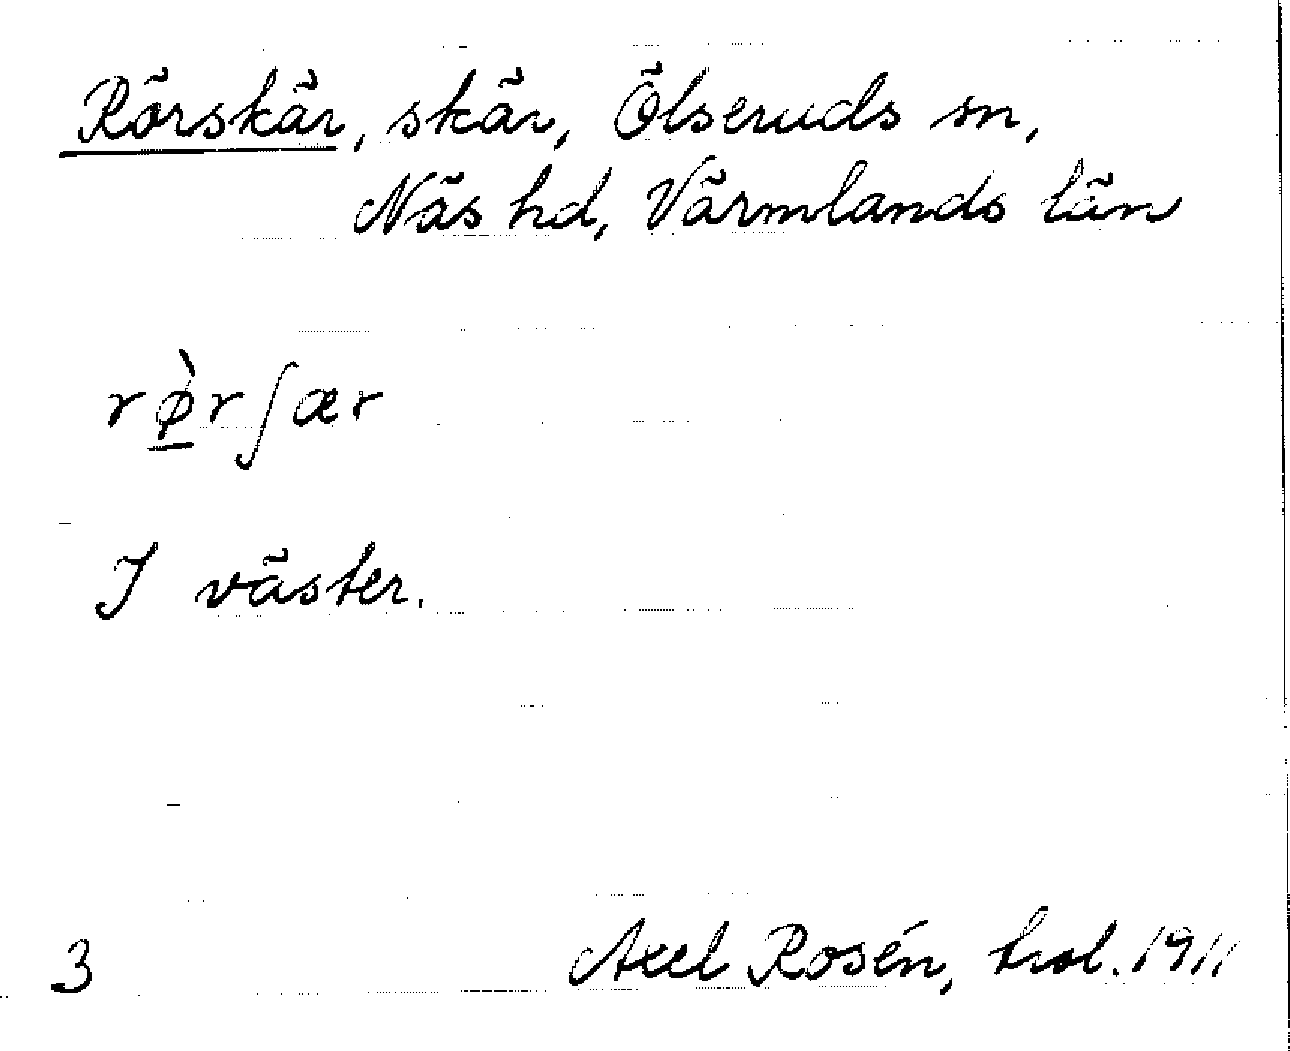 Rörskär, skär, Ölseruds sn,
Näs hd, Värmlands län
rø̱̀rʃær
I väster.
3 Axel Rosén, trol. 1911